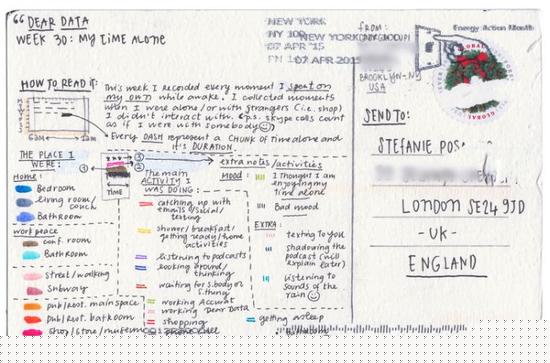 DEAR DATA
WEEK 30: MY TIME ALONE
HOW TO READ IT:
This week I recorded every moment I spent on
my own while awake. I collected moments
when I were alone/or with strangers (i.e. shop)
I didn't interact with. (p.s. skype calls count
as if I were with somebody)
6am 1am
Every DASH represent a CHUNK of time alone and
it's DURATION.
THE PLACE I
WERE:
Home:
Bedroom
living room/
couch
Bathroom
work place
conf. room
bathroom
street/walking
Subway
pub/rest. main space
pub/rest. bathroom
shop/store/museum
TIME
The main
ACTIVITY I
WAS DOING:
catching up with
emails/social/
texting
shower/breakfast/
getting ready/home
activities
listening to podcasts
looking around/
thinking
waiting for s.body or
s.thing
working Accurat
working Dear Data
shopping
phone call
extra notes/activities
MOOD:
I thought I am
enjoying my
time alone
Bad mood
EXTRA:
texting to you
shadowing the
podcast (will
explain later)
listening to
sounds of the
rain
getting asleep
NEW YORK
NY 100
NEW YORK NY 100
07 APR '15
07 APR 2015
FROM:
BROOKLYN-NY
USA
Energy Action Month
GLOBAL
SEND TO:
STEFANIE POS
LONDON SE24 9JD
-UK-
ENGLAND